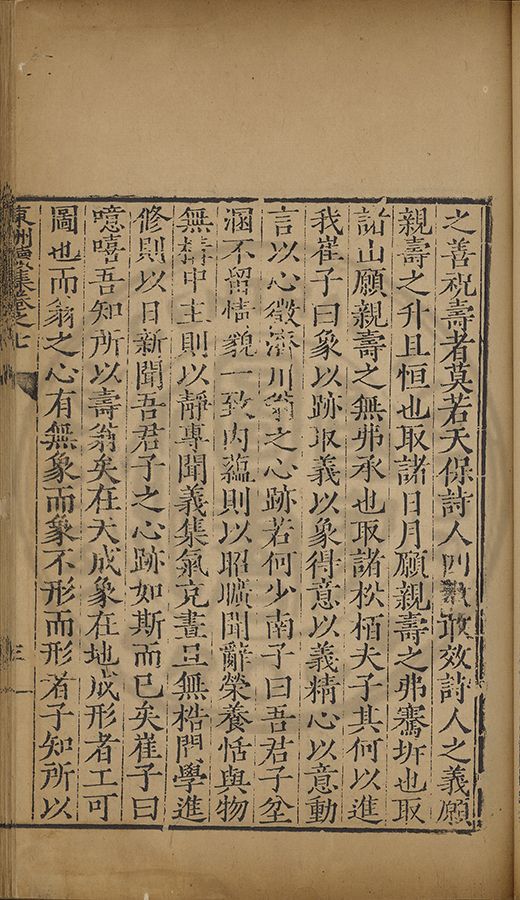 之善祝壽者莫若天保詩人四敢效詩人之義願
親壽之升且恒也取諸日月願親壽之弗騫圻也取
諸山願親壽之無弗承也取諸松栢夫子其何以進
我崔子曰象以跡取義以象得意以義精心以意動
言以心微濟川翁之心跡若何少南子曰吾君子坌
溷不留情貌一致内蘊則以昭曠聞辭榮養恬與物
無搆中主則以靜專聞義集氣克晝旦無梏門學進
修則以日新聞吾君子之心跡如斯而已矣崔子曰
噫嘻吾知所以壽翁矣在天成象在地成形者工可
圖也而翁之心有無象而象不形而形者子知所以
東洲集卷之七
三